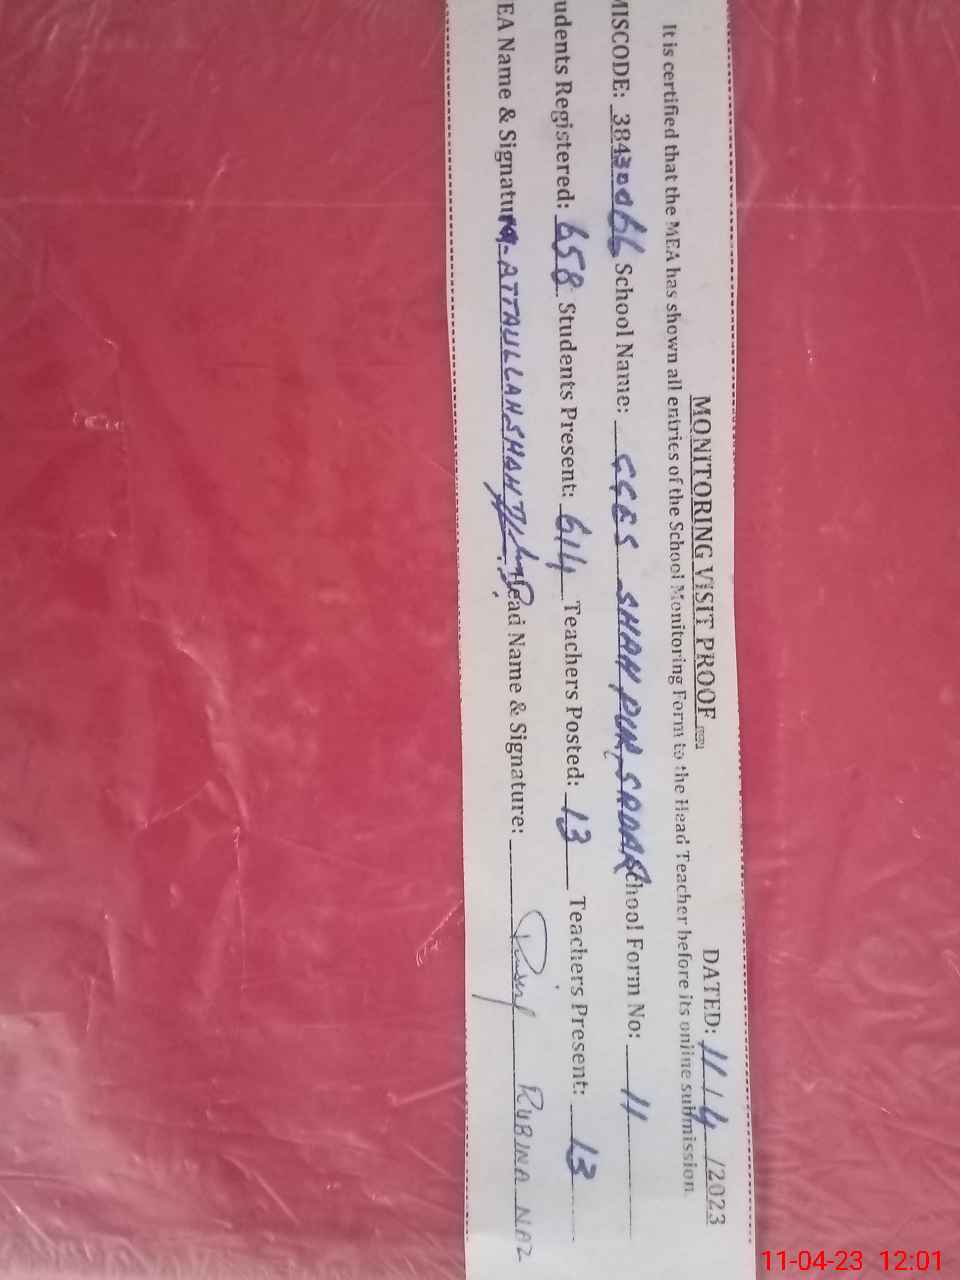 MONITORING VISIT PROOF DATED: 11/4/2023
It is certified that the MEA has shown all entries of the School Monitoring Form to the Head Teacher before its online submission.
MISCODE: 38430066 School Name: GGES SHAH PUR SADAR School Form No: 11
udents Registered: 658 Students Present: 614 Teachers Posted: 13 Teachers Present: 13
EA Name & Signature ATTAULLAH SHAH Head Name & Signature: RUBINA NAZ
11-04-23 12:01